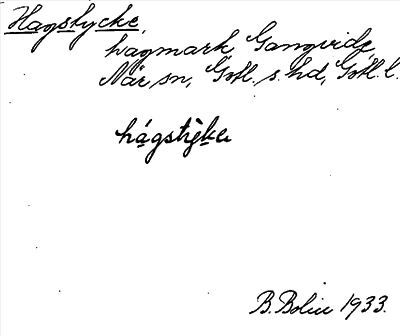 Hagstycke,
hagmark, Gangvide,
När sn, Gotl. s. hd, Gotl. l.
hágstỳke
B. Bolin 1933.